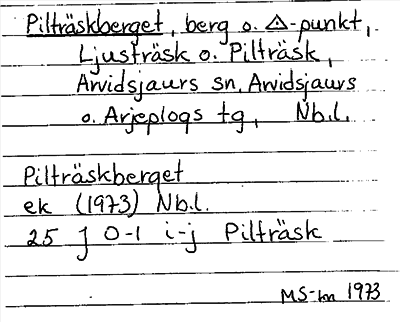 Pilträskberget, berg o. △-punkt,
Ljusträsk o. Pilträsk,
Arvidsjaurs sn, Arvidsjaurs
o. Arjeplogs tg, Nb.l.
Pilträskberget
ek (1973) Nb.l.
25 J 0-1 i-j Pilträsk
1973